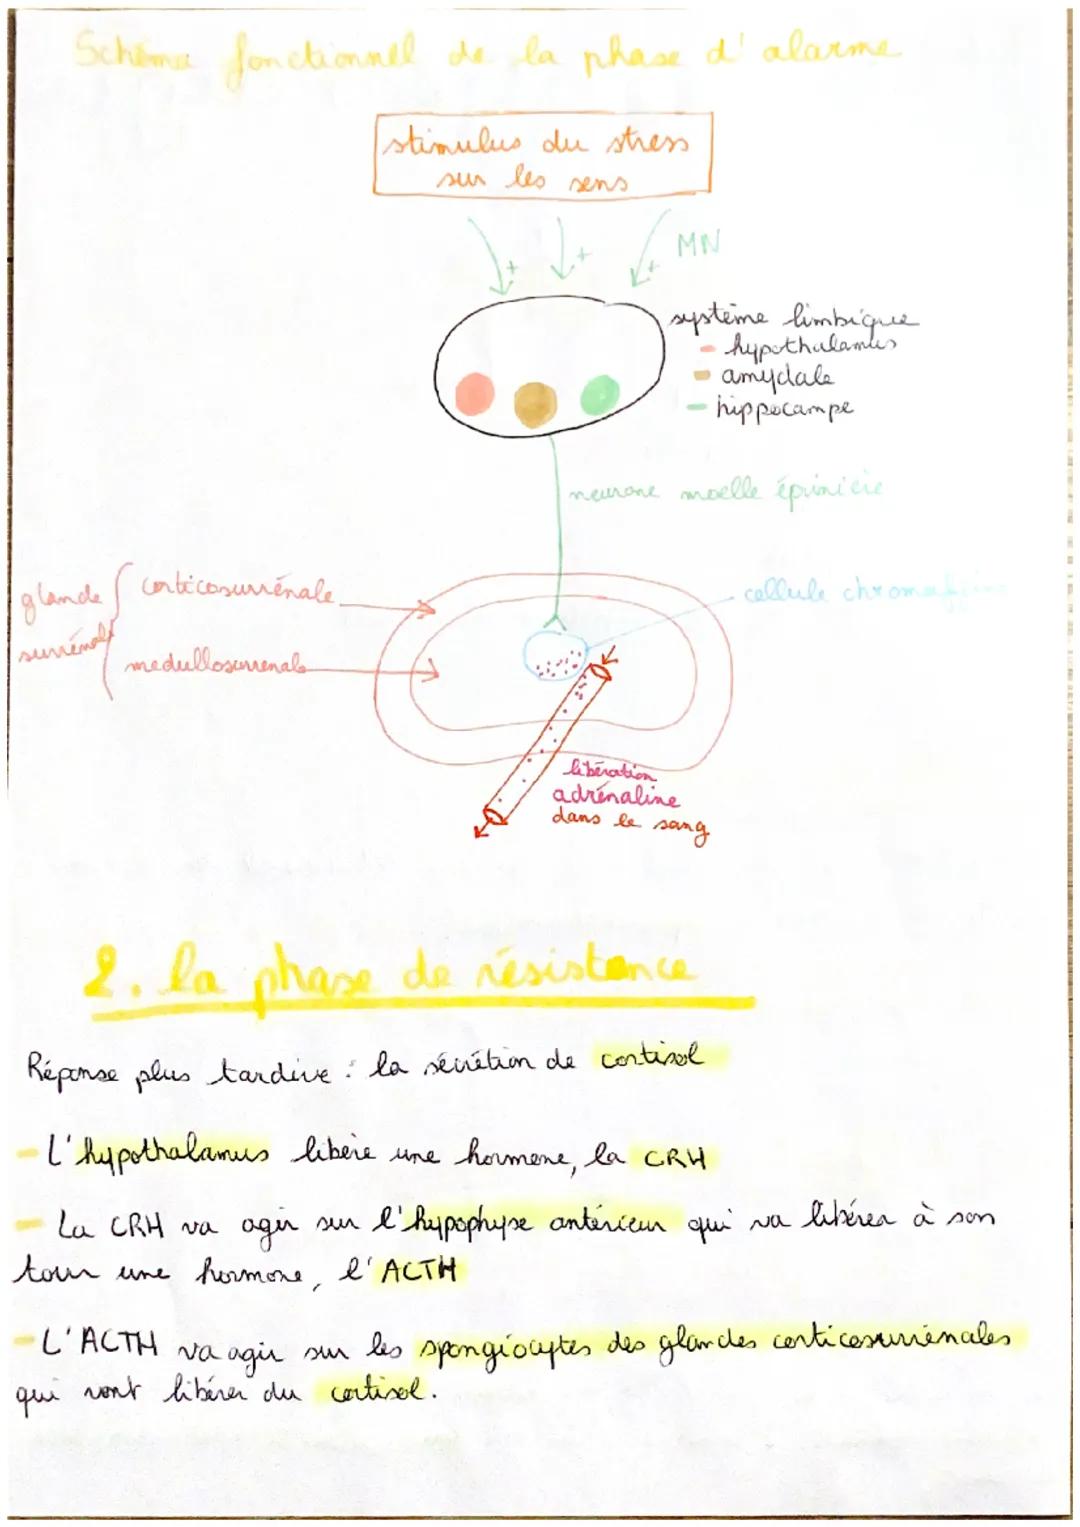 Schéma fonctionnel de la phase d'alarme
stimulus du stress
sur les sens
+ + + MN
système limbique
- hypothalamus
- amydale
- hippocampe
neurone moelle épinière
glande surrénale
corticosurrénale
cellule chromaffine
medullosurrenale
libération
adrénaline
dans le sang
2. la phase de résistance
Réponse plus tardive : la sécrétion de cortisol
- L'hypothalamus libère une hormone, la CRH
- La CRH va agir sur l'hypophyse antérieur qui va libérer à son
tour une hormone, l'ACTH
- L'ACTH va agir sur les spongiocytes des glandes corticosurrénales
qui vont libérer du cortisol.